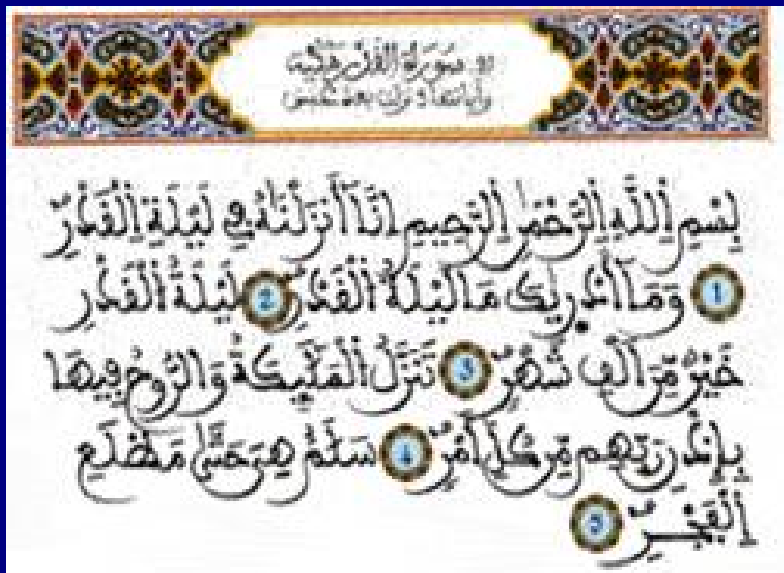 سُورَةُ الْقَدْرِ مَكِّيَّة
وآياتها 5 نزلت بعد عبس
بِسْمِ اِللَّهِ اِلرَّحْمَٰنِ اِلرَّحِيمِ اِنَّآ أَنزَلْنَٰهُ فِي لَيْلَةِ اِلْقَدْرِ
1 وَمَآ أَدْرٜيٰكَ مَا لَيْلَةُ اُلْقَدْرِ 2 لَيْلَةُ اُلْقَدْرِ
خَيْرٌ مِّنَ اَلْفِ شَهْرٍ 3 تَنَزَّلُ اُلْمَلَٰٓئِكَةُ وَالرُّوحُ فِيهَا
بِإِذْنِ رَبِّهِم مِّن كُلِّ أَمْرٍ 4 سَلَٰمٌ هِيَ حَتَّىٰ مَطْلَعِ
اِلْفَجْرِ 5